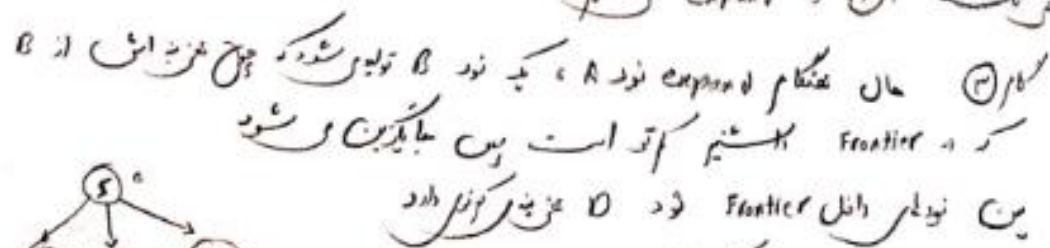 expand
گام ③ حال هنگام expand نود A ، یک نود B تولید می شود که چون هزینه اش از B
که در Frontier داشتیم کمتر است پس جایگزین می شود
بین نودهای داخل Frontier نود D هزینه ی کمتری دارد
S